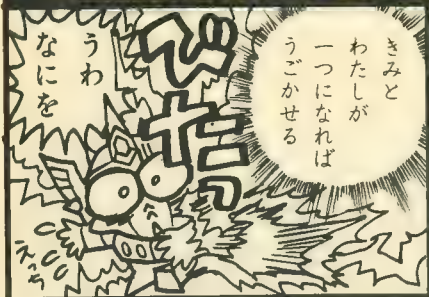 きみと
わたしが
一つになれば
うごかせる
べたーっ
うわ
なにを
えっち